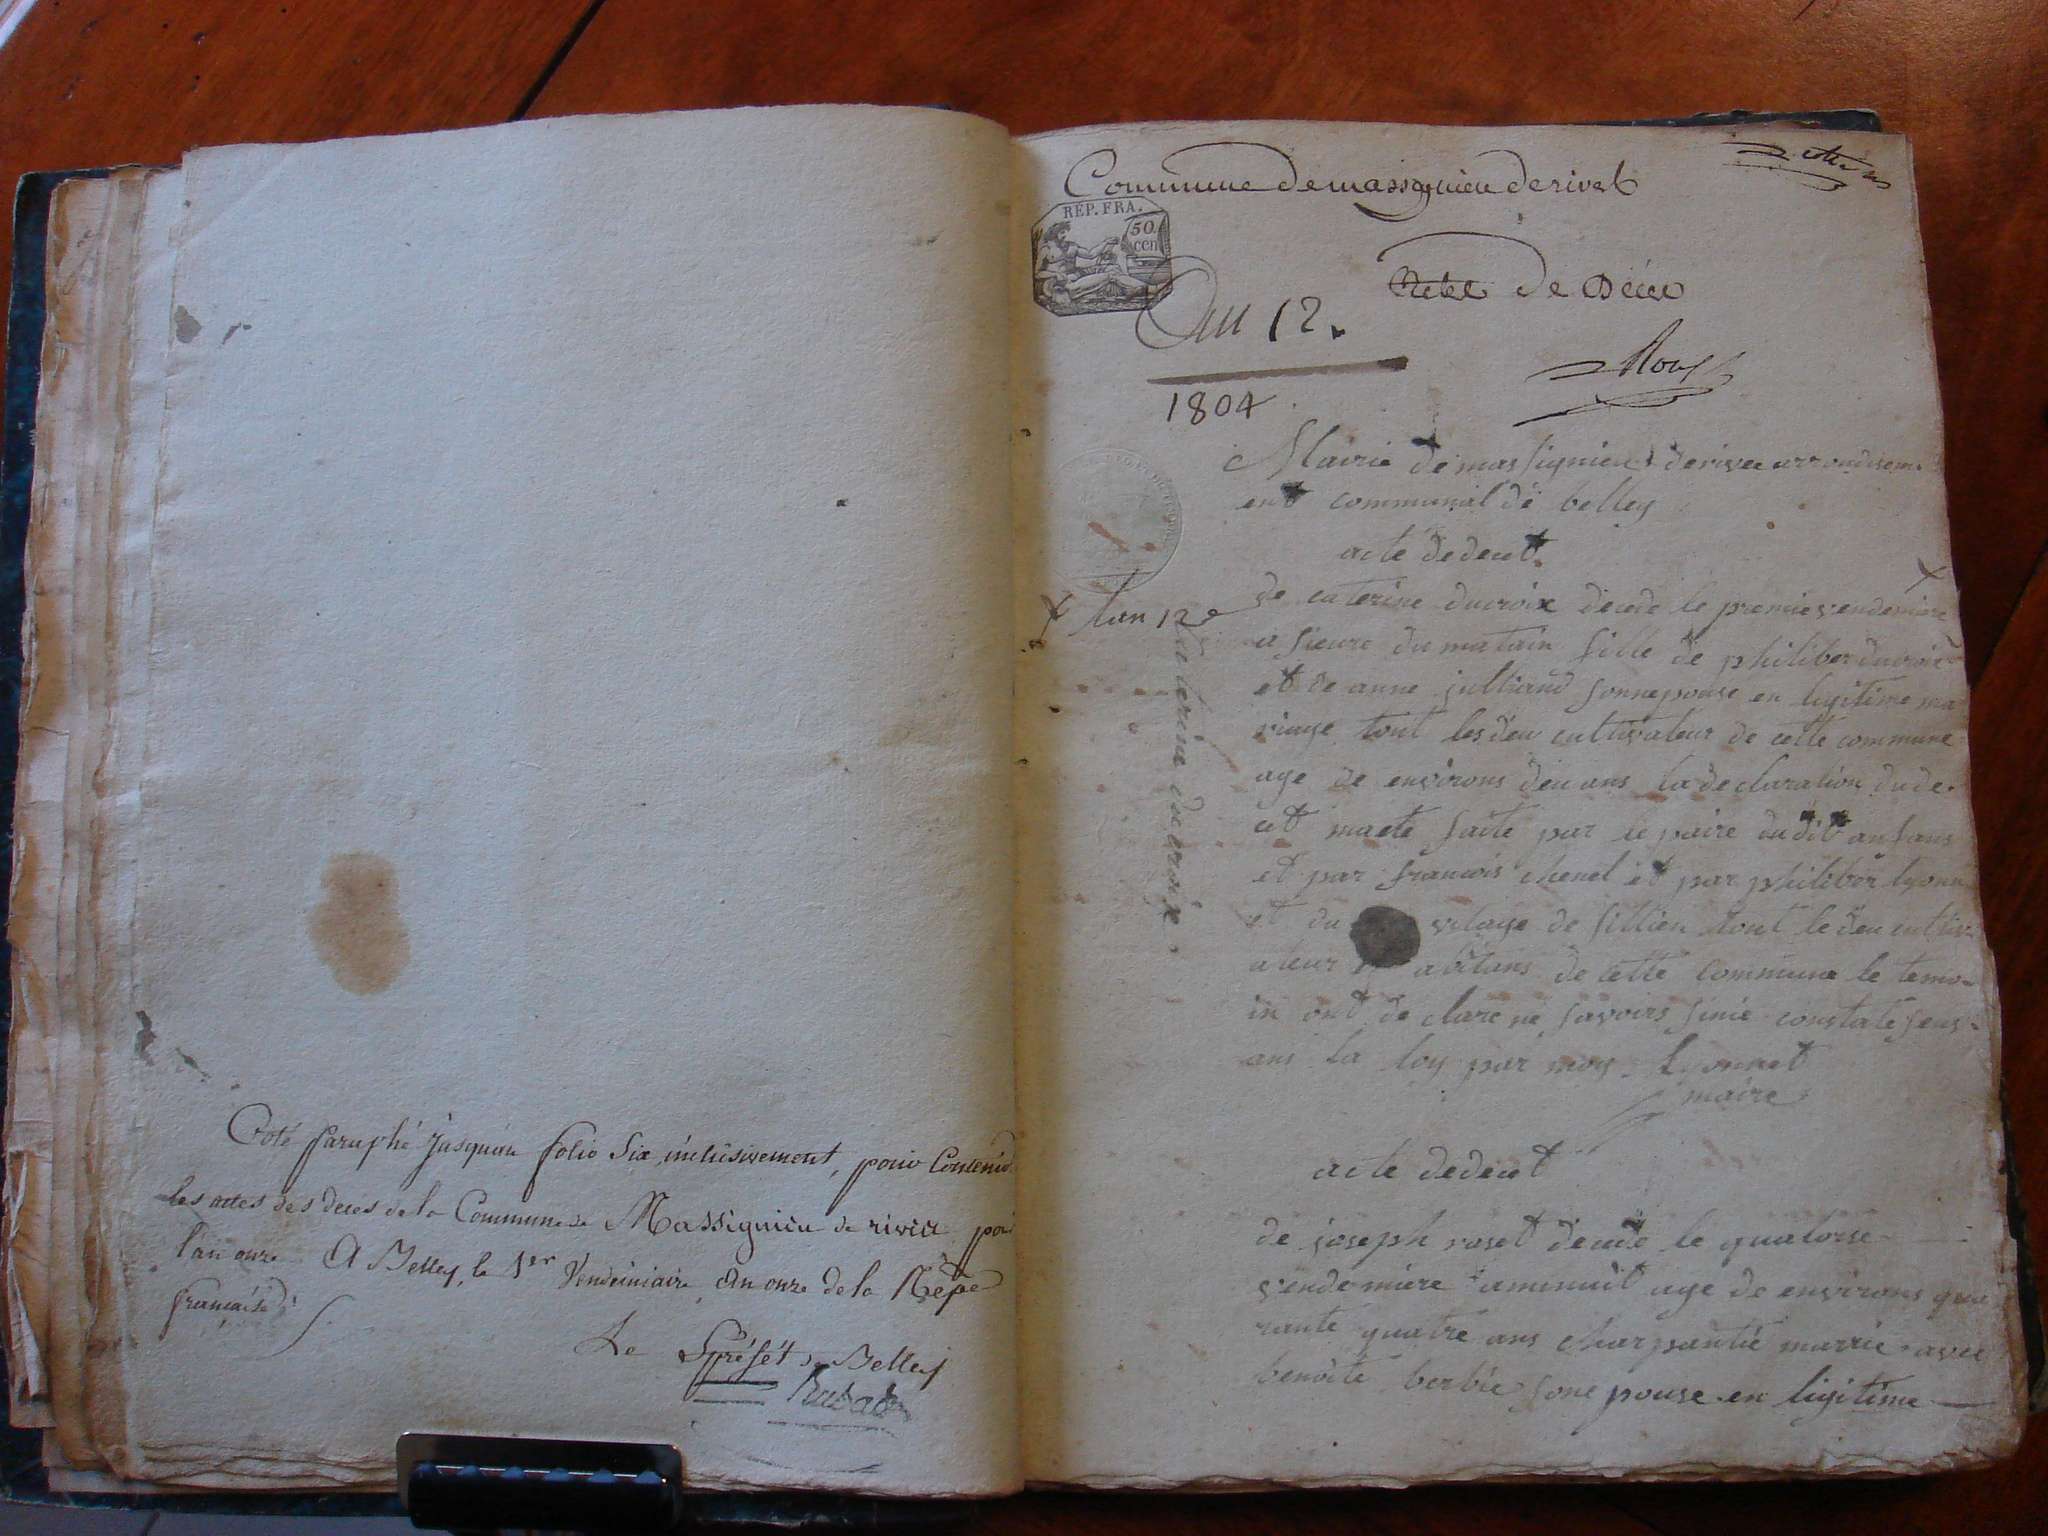 Coté paraphé jusquau folio Six inclusivement, pour Contenir
les actes des décès de la Commune de Massignieu de rives pour
l'an onze A Belley, le 1er Vendemiaire, An onze de la Rép
française
Le Spréfét de Belley
Commune de massignieu de rives
RÉP. FRA.
50 cen
Actes De Décès
An 12.
1804
Mairie de massignieu derives arrondisem
ent communal de belley
acte dedecet
x lan 12e
de caterine ducroix decedé le premie vendemiere x
du matain fille de philiber ducroix
et de anne julliand sonnepouse en legitime ma
riage tout les deu cultivateur de cette commune
age de environs deu ans la declaration du de
cet maete faite par le paire du dit anfans
et par francois chenel et par philiber lyonn
et du vilage de sillien tout le deu cultiv
ateur abitans de cette commune le temo
in ont de clare ne savoirs sinie constate
ans la loy par moy Lyonnet
maire
caterine ducroix
acte dedecet
de joseph roset decede le quatorse
vendemiere aminuit age de environs qua
rante quatre ans charpantié marrie avec
benoite berbie sone pouse en ligitime